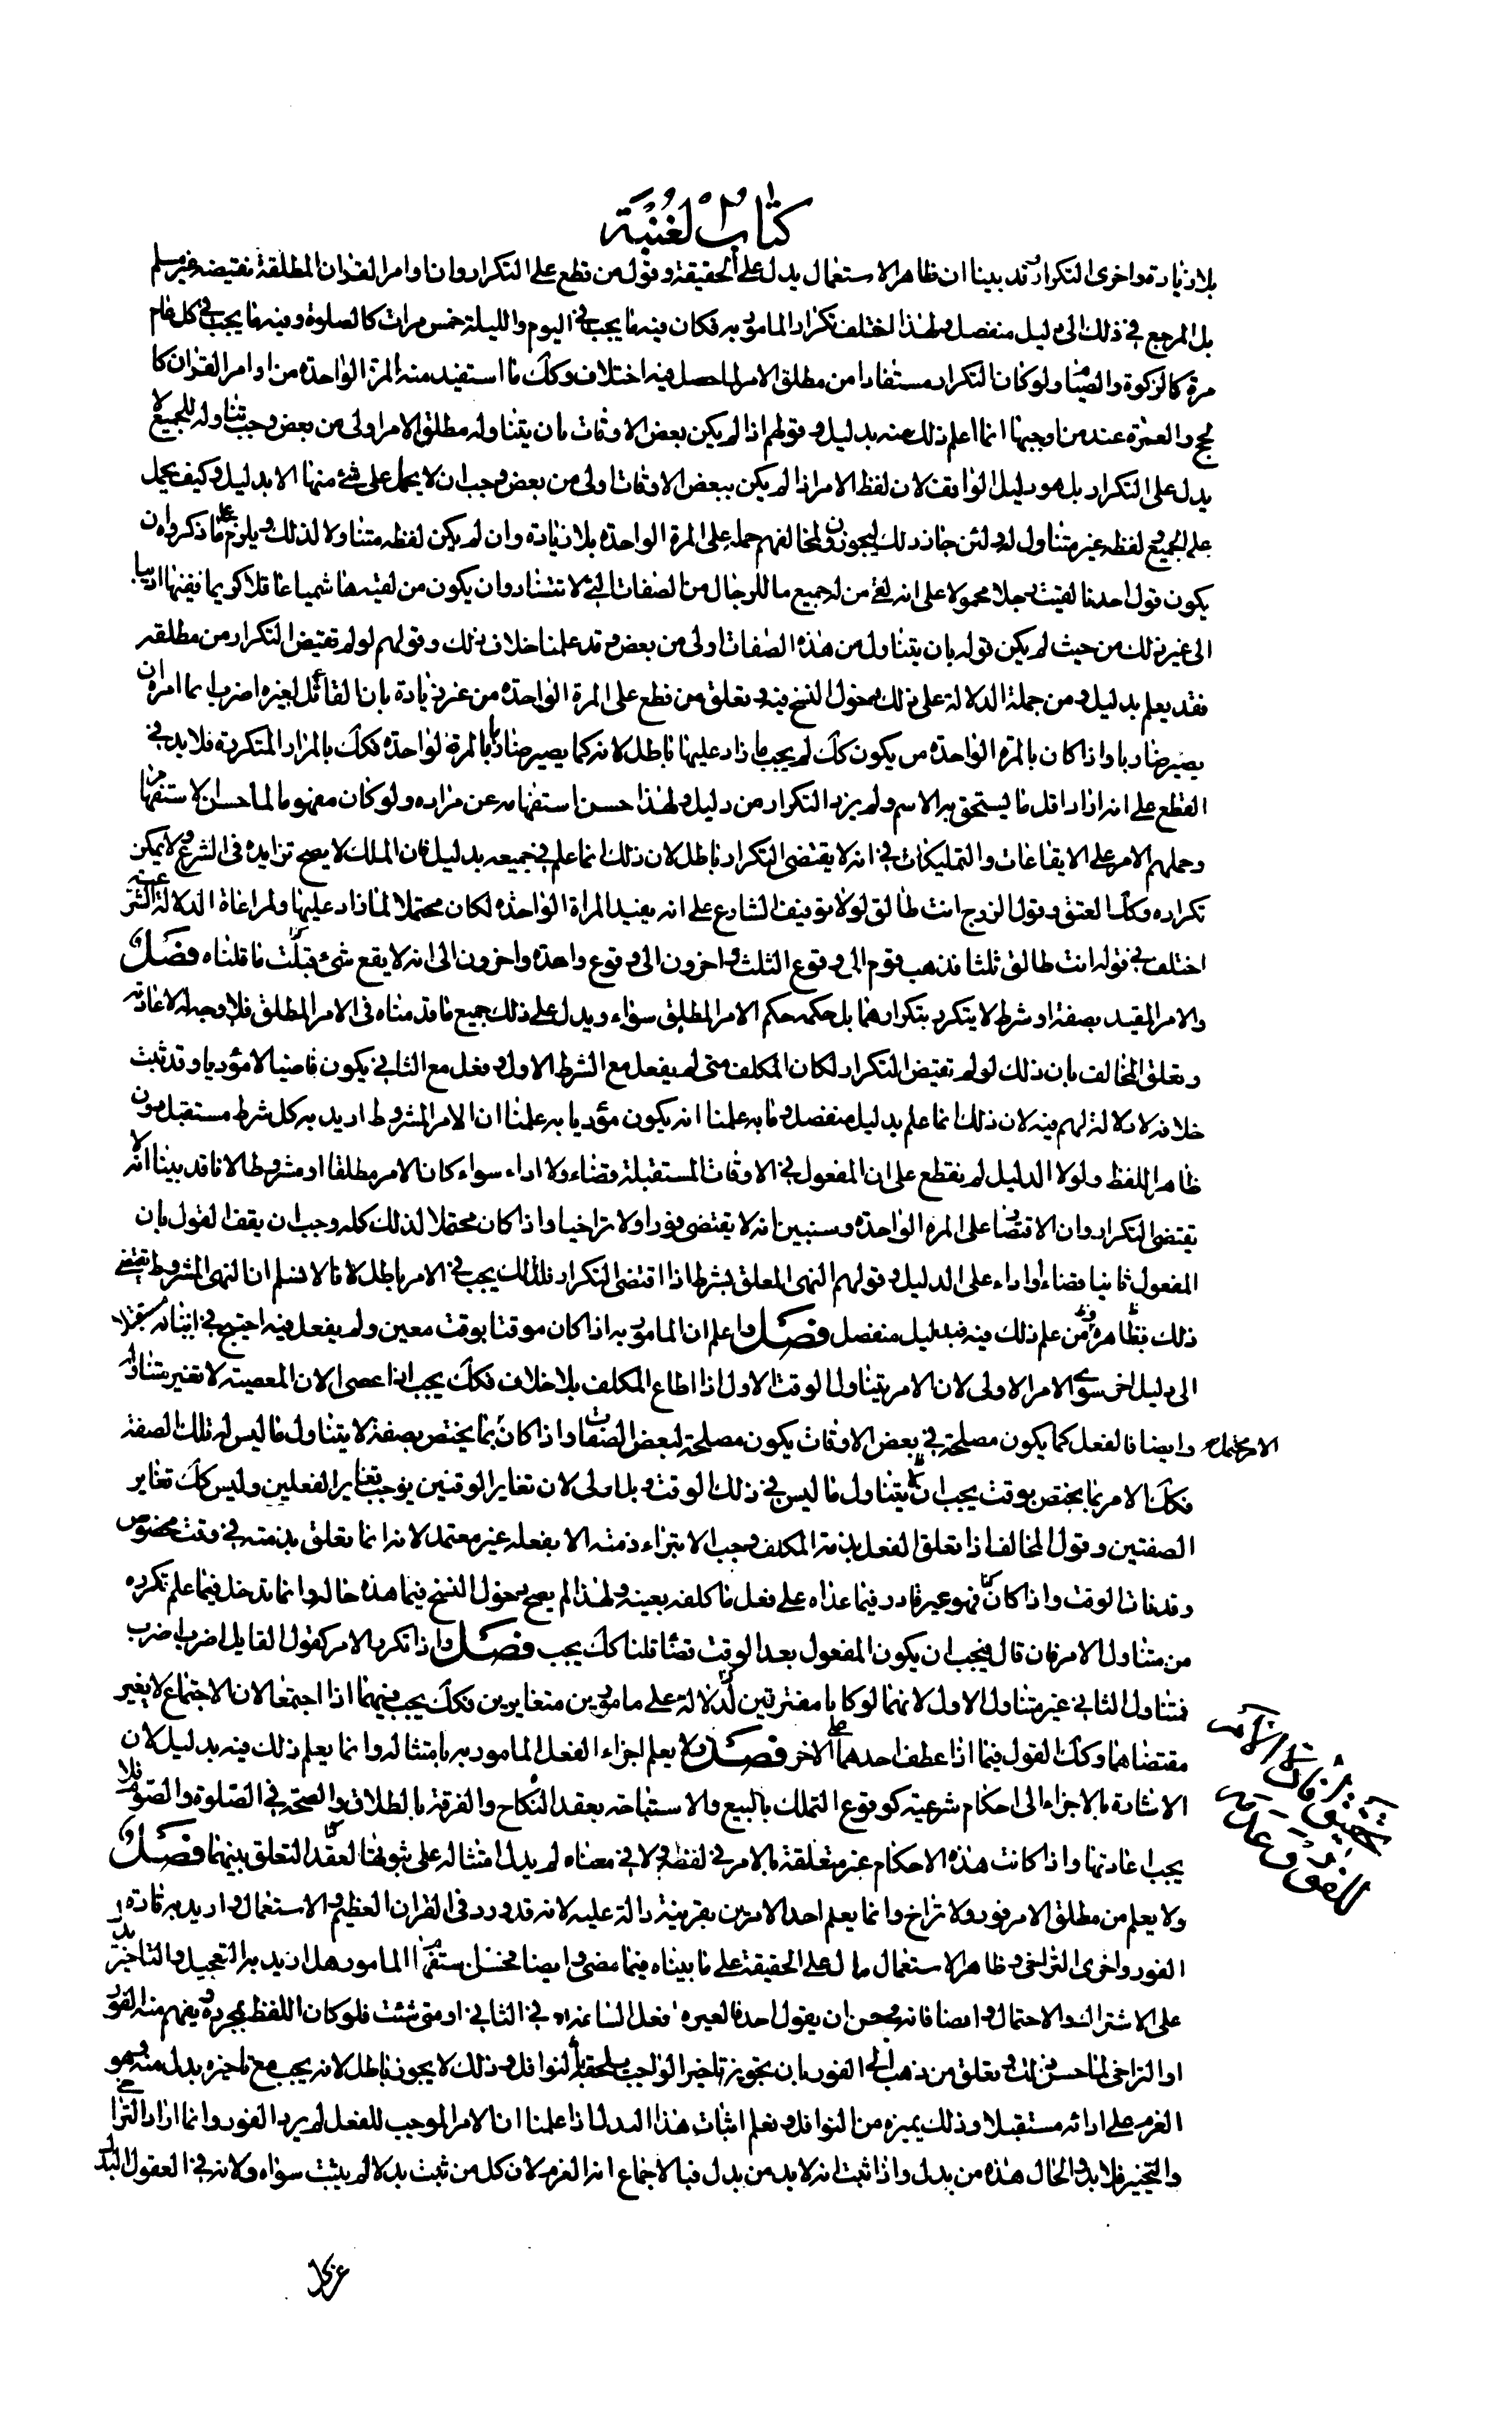 كتاب الغنية
بلا زيادة واخرى التكرار وقد بينا ان ظاهر الاستعمال يدل على الحقيقة وقول من قطع على التكرار وان اوامر القران المطلقة تقتضيه غير مسلم
بل المرجع في ذلك الى دليل منفصل ولهذا اختلف تكرار المامور به فكان فيه ما يجب في اليوم والليلة خمس مرات كالصلوة وفيه ما يجب في كل عام
مرة كالزكوة والصيام ولو كان التكرار مستفادا من مطلق الامر لما حصل فيه اختلاف وكك ما استفيد منه المرة الواحدة من اوامر القران كا
لحج والعمرة عند من اوجبها انما اعلم ذلك منه بدليل وقولهم اذا لم يكن بعض الاوقات بان يتناوله مطلق الامر اولى من بعض وجب تناوله للجميع لا
يدل على التكرار بل هو دليل الواقف لان لفظ الامر اذا لم يكن ببعض الاوقات اولى من بعض وجب ان لا يحمل على شئ منها الا بدليل وكيف يحمل
على الجميع ولفظه غير متناول له ولئن جاز ذلك ليجوزن لمخالفهم حمله على المرة الواحدة بلا زيادة وان لم يكن لفظه متناولا لذلك ويلزم على ما ذكروه ان
يكون قول احدنا لقيت رجلا محمولا على انه لقى من له جميع ما للرجال من الصفات التى لا تتضاد وان يكون من لقيه هاشميا عاقلا كريما فقيها اديبا
الى غير ذلك من حيث لم يكن قوله بان يتناول من هذه الصفات اولى من بعض وقد علمنا خلاف ذلك وقولهم لو لم تقتض التكرار من مطلقه
فقد يعلم بدليل ومن جملة الدلالة على ذلك دخول النسخ فيه وتعلق من قطع على المرة الواحدة من غير زيادة بان القائل لغيره اضرب انما امره ان
يصير ضاربا واذا كان بالمرة الواحدة يكون كك لم يجب ما زاد عليها باطل لانه كما يصير ضاربا بالمرة الواحدة فكك بالمرار المتكررة فلا بد في
القطع على انه اراد اقل ما يستحق به الاسم ولم يرد التكرار من دليل ولهذا حسن استفهامه عن مراده ولو كان مفهوما لما حسن الاستفهام
وحملهم الامر على الايقاعات والتمليكات في انه لا يقتضى التكرار باطل لان ذلك انما علم في جميعه بدليل فان الملك لا يصح تزايده فى الشرع ولا يمكن
تكراره وكك العتق وقول الزوج انت طالق لولا توقيف الشارع على انه يفيد المراة الواحدة لكان محتملا لما زاد عليها ولمراعاة الدلالة الشرعية
اختلف في قوله انت طالق ثلثا فذهب قوم الى وقوع الثلث واخرون الى وقوع واحدة واخرون الى انه لا يقع شئ فثبت ما قلناه فصل
والامر المقيد بصفة او شرط لا يتكرر بتكرارهما بل حكمه حكم الامر المطلق سواء ويدل على ذلك جميع ما قدمناه فى الامر المطلق فلا وجه لاعادته
وتعلق المخالف بان ذلك لو لم تقتض التكرار لكان المكلف متى لم يفعل مع الشرط الاول وفعل مع الثاني يكون قاضيا لا مؤديا وقد ثبت
خلافه لا دلالة لهم فيه لان ذلك انما علم بدليل منفصل وما به علمنا انه يكون مؤديا به علمنا ان الامر المشروط اريد به كل شرط مستقبل دون
ظاهر اللفظ ولولا الدليل لم نقطع على ان المفعول في الاوقات المستقبلة قضاء ولا اداء سواء كان الامر مطلقا او مشروطا لانا قد بينا انه لا
يقتضى التكرار وان الاقتصار على المرة الواحدة وسنبين انه لا يقتضى فورا ولا تراخيا واذا كان محتملا لذلك كله وجب ان يقف القول بان
المفعول ثانيا قضاء او اداء على الدليل وقولهم النهى المعلق بشرط اذا اقتضى التكرار فكذلك يجب في الامر باطل لانا لا نسلم ان النهى المشروط يقتضى
ذلك بظاهره ومن علم ذلك فيه فبدليل منفصل فصل واعلم ان المامور به اذا كان موقتا بوقت معين ولم يفعل فيه احتيج في اتيانه مستقبلا
الى دليل اخر سوى الامر الاول لان الامر يتناول الوقت الاول اذا اطاع المكلف بلا خلاف فكك يجب اذا عصى لان المعصية لا تغير متناول
الامر وايضا فالفعل كما يكون مصلحة في بعض الاوقات يكون مصلحة لبعض الصفات واذا كان بما يختص بصفة لا يتناول ما ليس له تلك الصفة
فكك الامر بما يختص بوقت يجب ان لا يتناول ما ليس في ذلك الوقت بل اولى لان تغاير الوقتين يوجب تغاير الفعلين وليس كك تغاير
الصفتين وقول المخالف اذا تعلق الفعل بذمة المكلف وجب الا تبراء ذمته الا بفعله غير معتمد لانه انما تعلق بذمته في وقت مخصوص
وقد فات الوقت واذا كان كك فهو غير قادر فيما عداه على فعل ما كلفه بعينه ولهذا لم يصح دخول النسخ فيما هذه حاله وانما تدخل فيما علم تكرره
من متناول الامر فان قال فيجب ان يكون المفعول بعد الوقت قضاء قلنا كك يجب فصل واذا تكرر الامر كقول القايل اضرب اضرب
فتناول الثاني غير متناول الاول لانهما لو كانا مفترقين لدلا على مامورين متغايرين فكك يجب فيهما اذا اجتمعا لان الاجتماع لا يغير
مقتضاهما وكك القول فيما اذا عطف احدهما على الاخر فصل ولا يعلم اجزاء الفعل المامور به بامتثاله وانما يعلم ذلك فيه بدليل لان
الاشارة بالاجزاء الى احكام شرعية كوقوع التملك بالبيع والاستباحة بعقد النكاح والفرقة بالطلاق والصحة في الصلوة والصوم فلا
يجب اعادتها واذا كانت هذه الاحكام غير متعلقة بالامر في لفظه ولا في معناه لم يدل امتثاله على ثبوتها لفقد التعلق بينهما فصل
ولا يعلم من مطلق الامر فور ولا تراخ وانما يعلم احد الامرين بقرينة دالة عليه لانه قد ورد فى القران العظيم والاستعمال واريد به تارة
الفور واخرى التراخى وظاهر الاستعمال دال على الحقيقة على ما بيناه فيما مضى وايضا يحسن استفهام المامور هل اريد به التعجيل والتاخير يدل
على الاشتراك والاحتمال وايضا فانه يحسن ان يقول احدنا لغيره افعل الساعة او في الثاني او متى شئت فلو كان اللفظ بمجرده يفهم منه الفور
او التراخى لما حسن ذلك وتعلق من ذهب الى الفور بان تجويز تاخير الواجب يلحقه بالنوافل وذلك لا يجوز باطل لانه يجب مع تاخيره بدل منه وهو
العزم على ادائه مستقبلا وذلك يميزه من النوافل ونعلم اثبات هذا البدل اذا علمنا ان الامر الموجب للفعل لم يرد الفور وانما اراد التراخى
والتخيير فلا بد والحال هذه من بدل واذا ثبت انه لا بد من بدل فبالاجماع انه العزم لان كل من ثبت بدلا لم يثبت سواه ولانه في العقول البدل